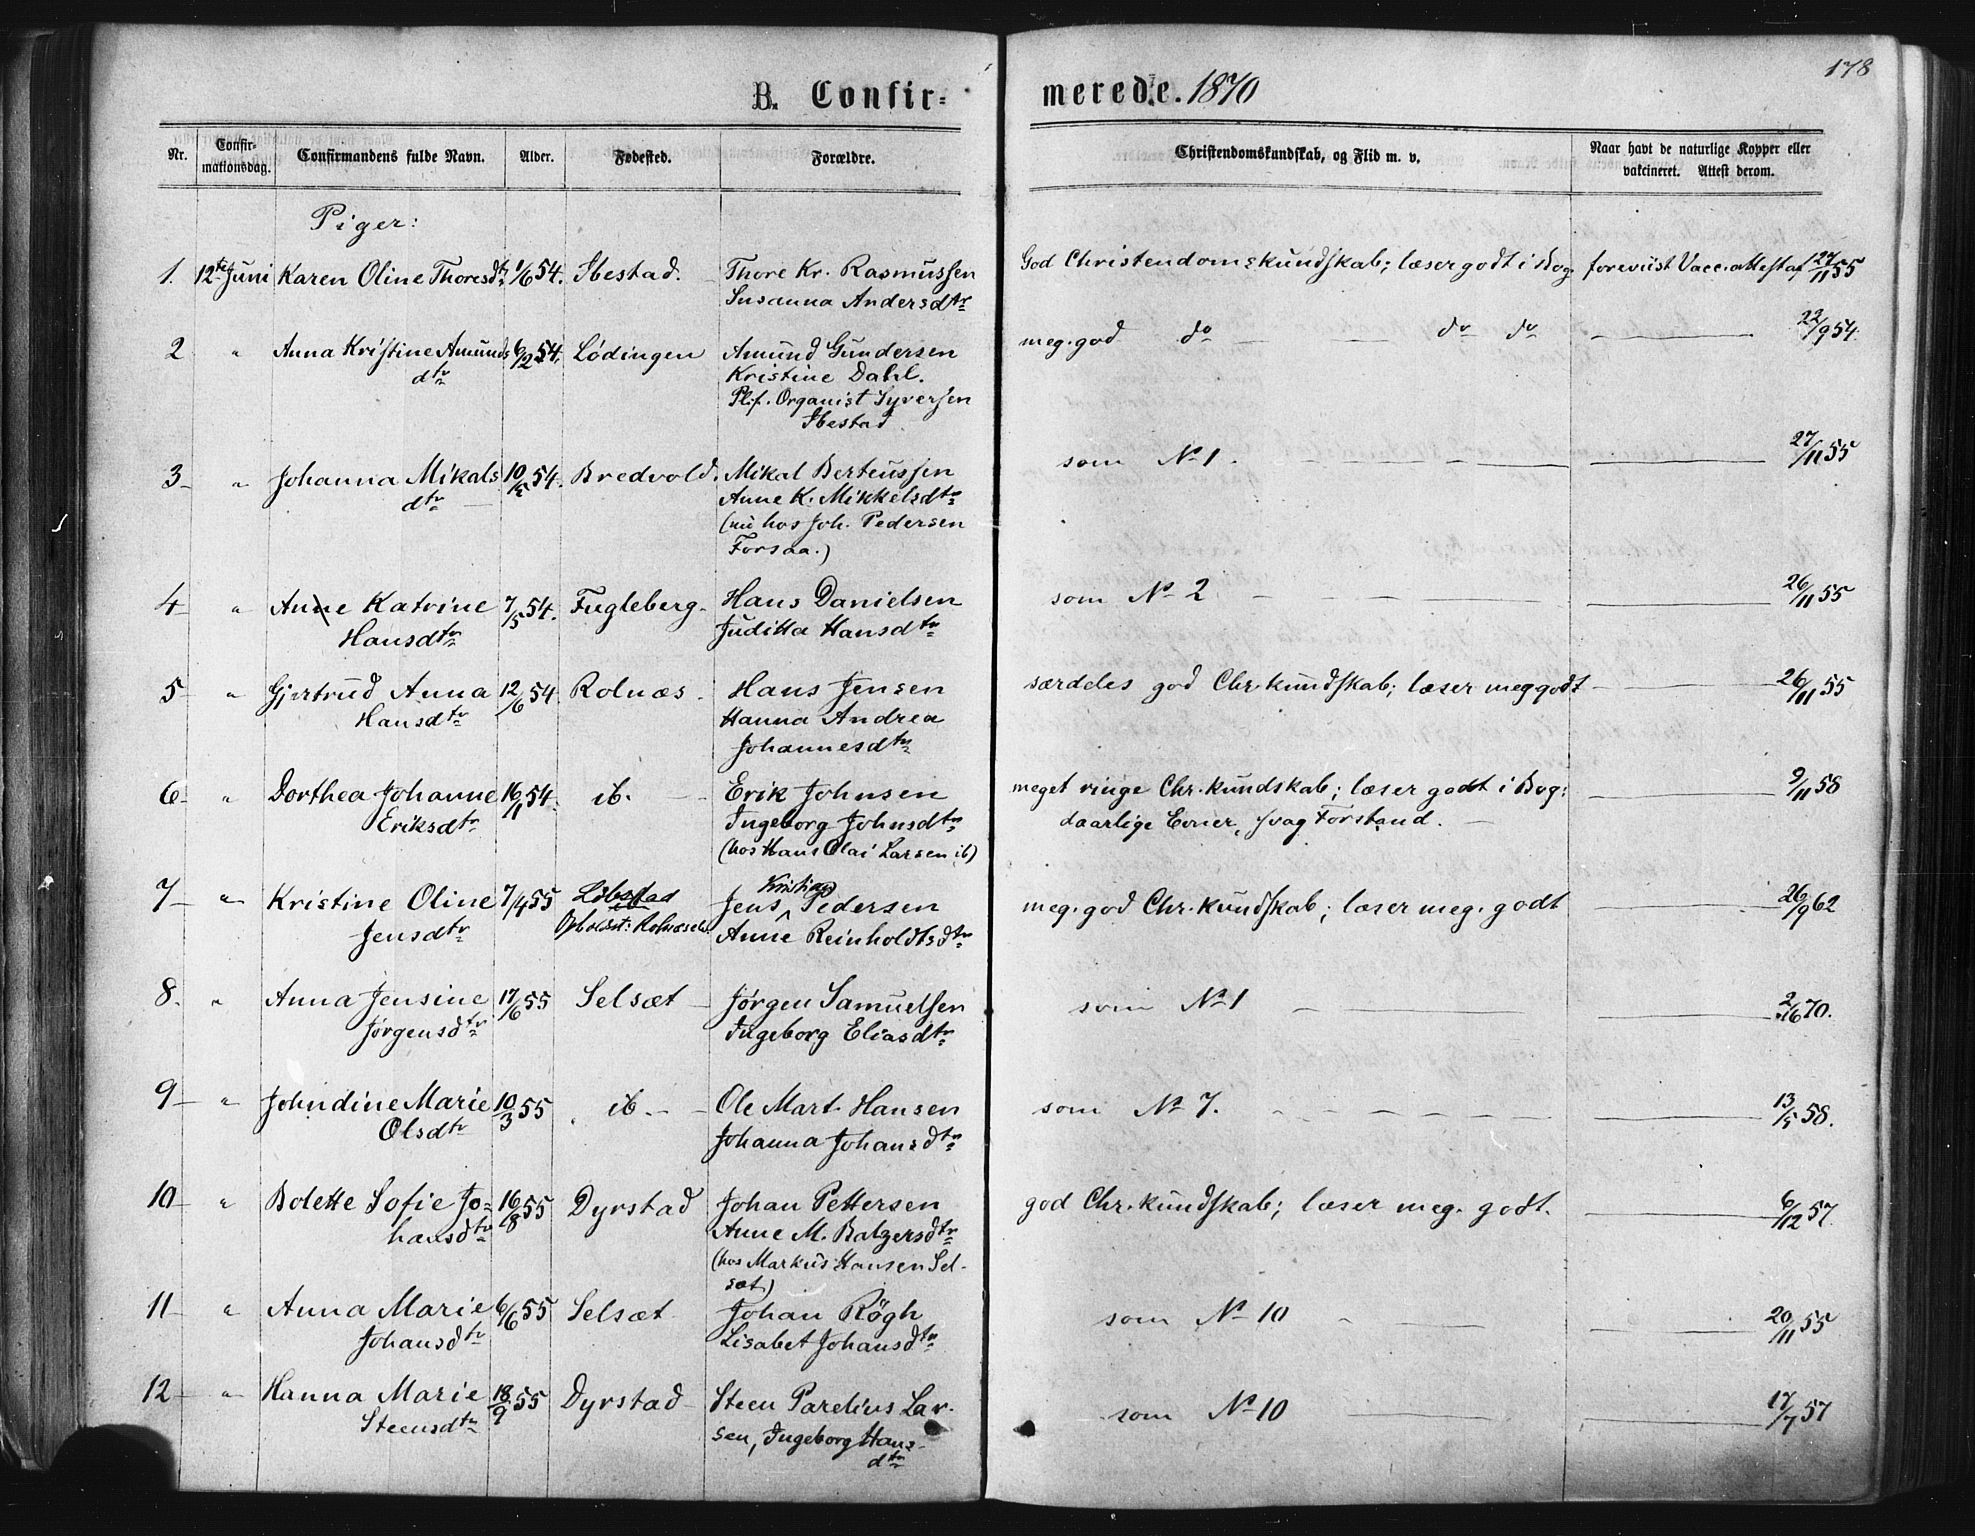 178
B. Confir= merede. 1870
Nr. Confir-mationsdag. Confirmandens fulde Navn. Alder. Fødested. Forældre. Christendomskundskab, og Flid m. v. Naar havt de naturlige Kopper eller vakcineret. Attest derom.
Piger:
1. 12te Juni Karen Oline Thoresdtr 1/6 54. Ibestad. Thore Kr. Rasmussen God Christendomskundskab; læser godt i Bog. foreviist Vacc.attest af 27/11 55
Susanna Andersdtr
2 " Anna Kristine Amunds 6/2 54. Lödingen Amund Gundersen meg. god do — — do do — 22/9 54.
dtr Kristine Dahl.
Plif. Organist Syversen
Ibestad
3 " Johanna Mikals 10/5 54. Bredvold. Mikal Berteussen som No 1. — — 27/11 55
dtr Anne K. Mikkelsdtr
(nu hos Joh. Pedersen
Forsaa.)
4 " Anne Katrine 7/5 54. Fugleberg. Hans Danielsen som No 2 — — 26/11 55
Hansdtr Juditta Hansdtr
5 " Gjertrud Anna 12/6 54. Rolnæs Hans Jensen særdeles god Chr. kundskab; læser meg godt — 26/11 55
Hansdtr Hanna Andrea
Johannesdtr
6 " Dorthea Johanne 16/11 54. ib. Erik Johnsen meget ringe Chr. kundskab; læser godt i Bog; — 9/11 58
Eriksdtr Ingeborg Johnsdtr daarlige Evner, svag Forstand.
(hos Hans Olai Larsen ib)
7 " Kristine Oline 7/4 55 Kristian
Jens Pedersen meg. god Chr. kundskab; læser meg. godt — 26/9 62
Jensdtr Opholdst: Anne Reinholdtsdtr
8. " Anna Jensine 17/6 55 Selsæt Jørgen Samuelsen som No 1 — — 2/6 70.
Jørgensdtr Ingeborg Eliasdtr
9 " Johndine Marie 10/3 55 ib. Ole Mart. Hansen som No 7. — — 13/5 58.
Olsdtr Johanna Johansdtr
10 " Bolette Sofie Jo= 16/8 55 Dyrstad Johan Pettersen god Chr. kundskab; læser meg. godt. — 6/12 57
hansdtr Anne M. Balzersdtr
(hos Markus Hansen Sel-
sæt)
11 " Anna Marie 6/6 55 Selsæt Johan Røgh som No 10 — — 20/11 55
Johansdtr Lisabet Johansdtr
12 " Hanna Marie 18/9 55 Dyrstad Steen Parelius Lar- som No 10 — — 17/7 57
Steensdtr sen, Ingeborg Hans-
dtr